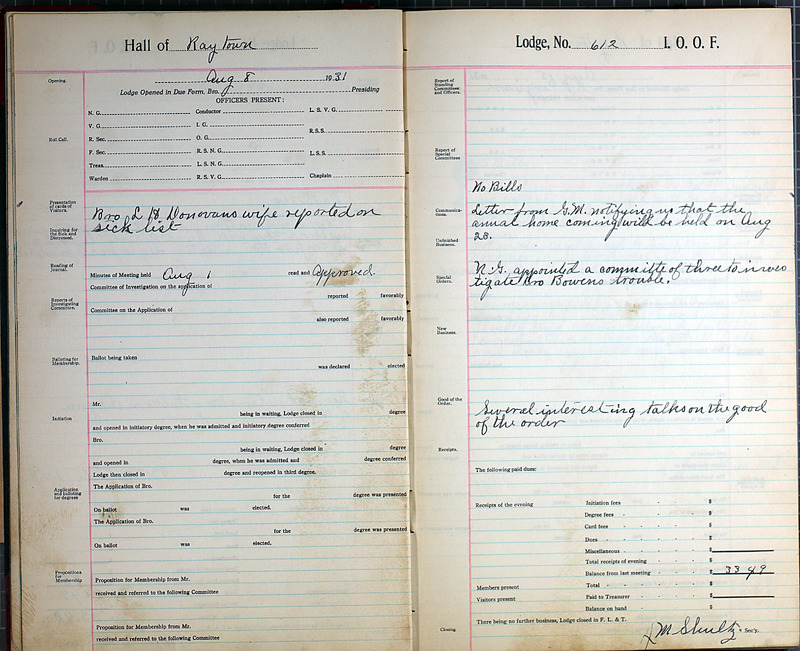 Hall of Raytown
Opening.
Aug 8 1931
Lodge Opened in Due Form, Bro. Presiding
OFFICERS PRESENT:
Roll Call.
N. G. Conductor L. S. V. G.
V. G. I. G.
R.S.S.
R. Sec. O. G.
F. Sec. R. S. N. G. L.S.S.
Treas. L. S. N. G.
Warden R. S. V. G. Chaplain
Presentation of cards of Visitors.
Bro L H Donovans wife reported on
sick list
Inquiring for the Sick and Distressed.
Reading of Journal.
Minutes of Meeting held Aug 1 read and Approved.
Committee of Investigation on the application of
reported favorably
Reports of Investigating Committee.
Committee on the Application of
also reported favorably
Balloting for Membership.
Ballot being taken
was declared elected
Mr.
Initiation
being in waiting, Lodge closed in degree
and opened in initiatory degree, when he was admitted and initiatory degree conferred
Bro.
being in waiting, Lodge closed in degree
and opened in degree, when he was admitted and degree conferred
Lodge then closed in degree and reopened in third degree.
Application and balloting for degrees
The Application of Bro.
for the degree was presented
On ballot was elected.
The Application of Bro.
for the degree was presented
On ballot was elected.
Propositions for Membership
Proposition for Membership from Mr.
received and referred to the following Committee
Proposition for Membership from Mr.
received and referred to the following Committee
Lodge, No. 612 I. O. O. F.
Report of Standing Committees and Officers.
Report of Special Committees
No Bills
Communications.
Letter from G.M. notifying us that the
anual home coming will be held on Aug
28.
Unfinished Business.
Special Orders.
N.G. appointed a committe of three to inves
tigate Bro Bowens trouble.
New Business.
Good of the Order.
Several interesting talks on the good
of the order
Receipts.
The following paid dues:
Receipts of the evening Initiation fees $
Degree fees $
Card fees $
Dues $
Miscellaneous $
Total receipts of evening $
Balance from last meeting $ 33 49
Members present Total $
Visitors present Paid to Treasurer $
Balance on hand $
There being no further business, Lodge closed in F. L. & T.
Closing M Shultz Sec'y.